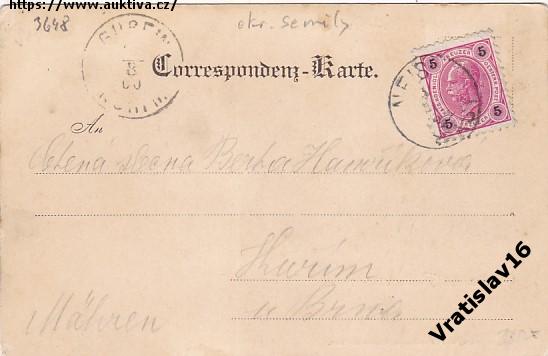 https://www.auktiva.cz/
3648
okr. Semily
GUREIN
Correspondenz-Karte.
5 KREUZER 5
5 5
An
Ctěná slečna Berta Hamříkova
Kuřim
u Brna
Mähren
Vratislav16